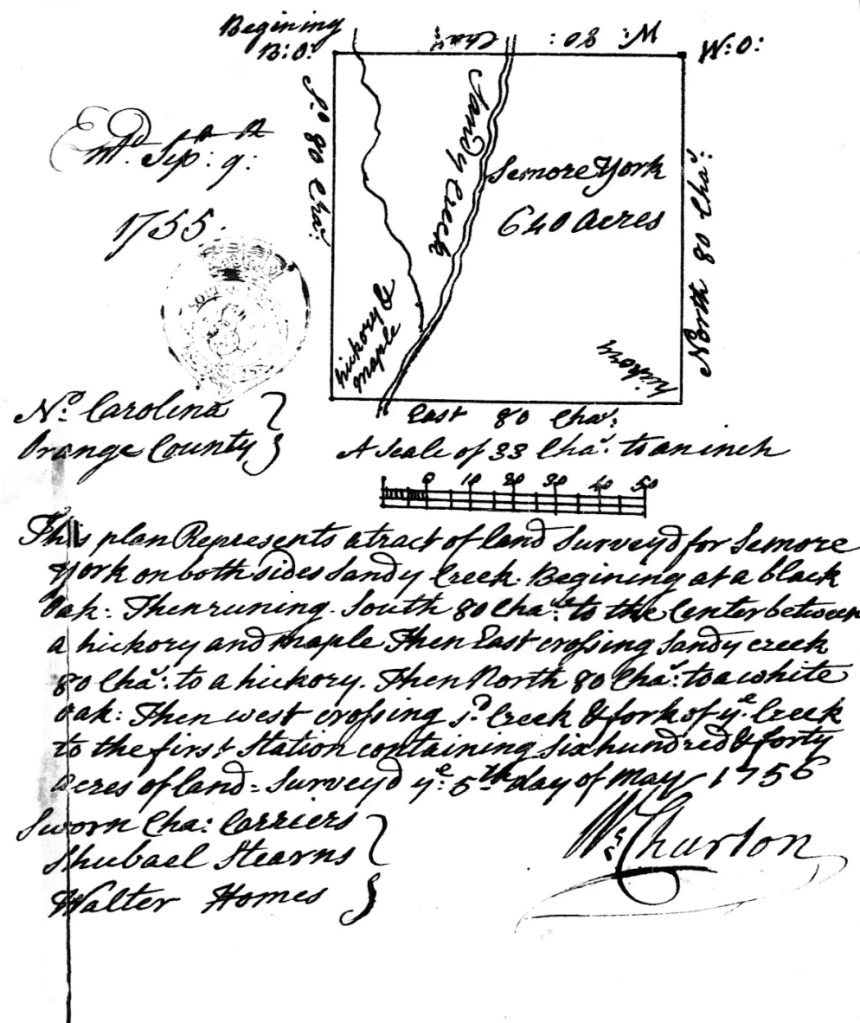 Begining
B: O:
W: 80 Cha:
W: O:
So 80 Cha:
Sandy Creek
Semore York
640 acres
North 80 Cha:
Entd. Sepr. ye 9:
1755.
hickory &
maple
hickory
East 80 Cha:
No. Carolina }
Orange County }
A Scale of 33 Cha: to an inch
0 10 20 30 40 50
This plan Represents a tract of land Surveyd for Semore
York on both sides Sandy Creek Begining at a black
Oak: Then runing South 80 Cha: to the Center between
a hickory and maple Then East crossing Sandy creek
80 Cha: to a hickory. Then North 80 Cha: to a white
oak: Then west crossing sd. Creek & fork of ye. Creek
to the first Station containing Six hundred & forty
acres of land - Surveyd ye: 5th day of May 1756
Sworn Cha: Carriers
Shubael Stearns
Walter Homes
Wm Churton